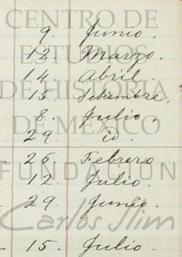 9. Junio.
12. Marzo.
14. Abril.
15. Setiembre.
8. Julio.
29. id.
26. Febrero
12. Julio.
29. Junio.
15. Julio.
CENTRO DE
ESTUDIOS
DE HISTORIA
DE MÉXICO
FUNDACIÓN
Carlos Slim